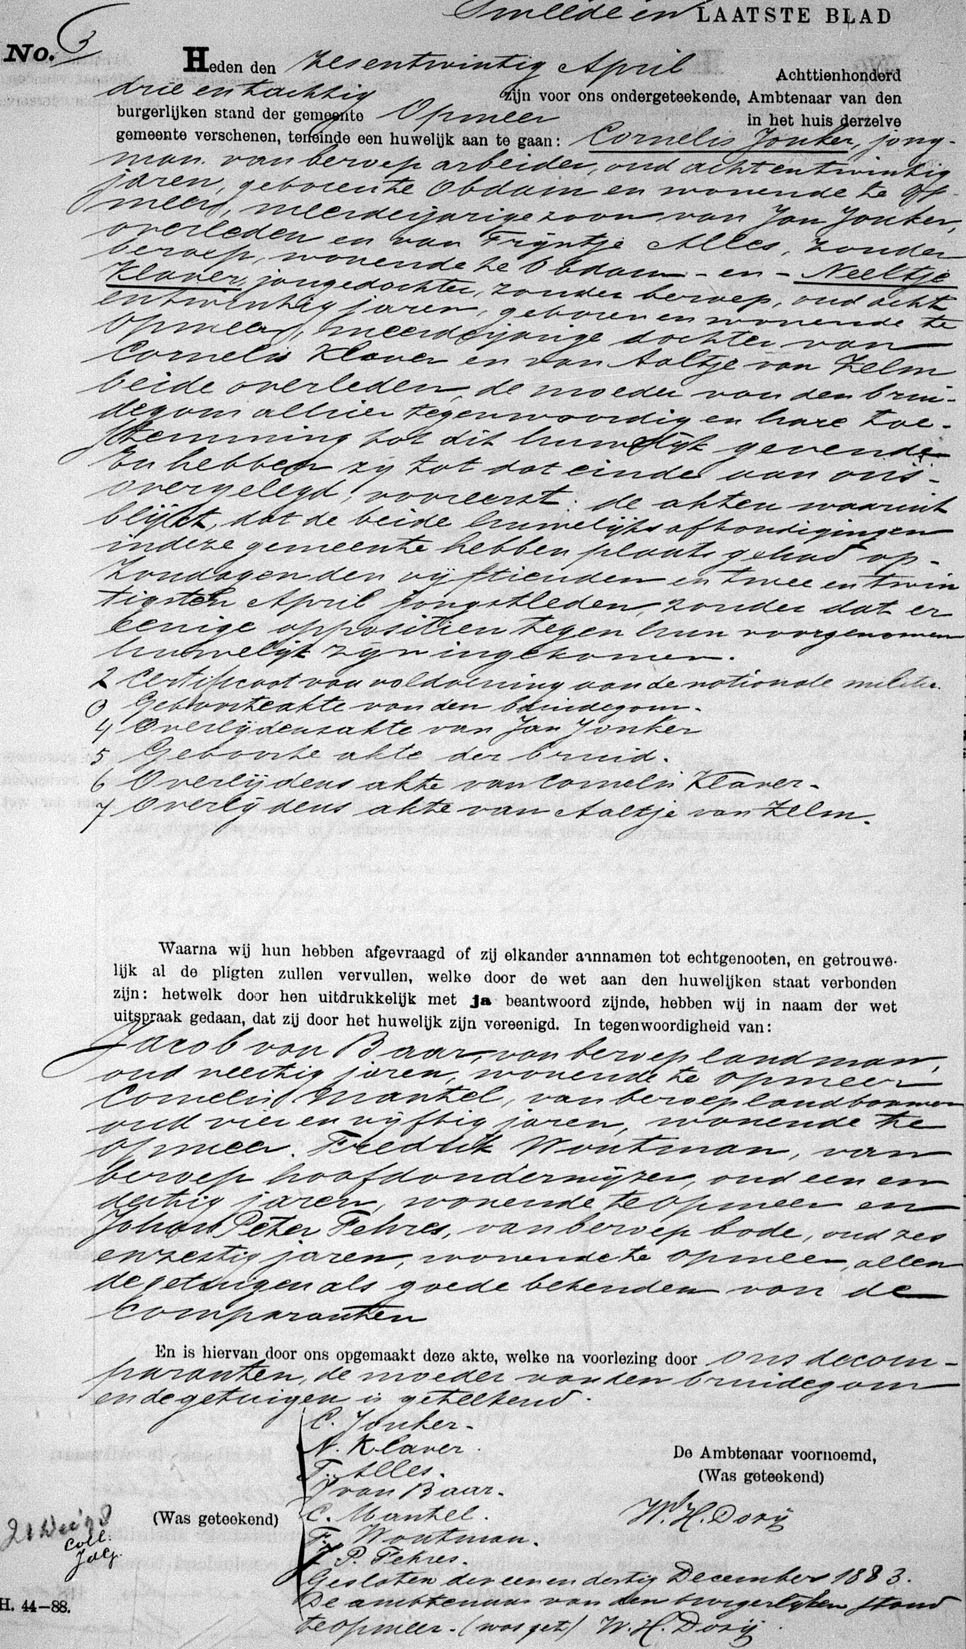 Tweede en LAATSTE BLAD
No. 3
Heden den zesentwintig April Achttienhonderd
drie en tachtig zijn voor ons ondergeteekende, Ambtenaar van den
burgerlijken stand der gemeente Opmeer in het huis derzelve
gemeente verschenen, teneinde een huwelijk aan te gaan: Cornelis Jonker, jong-
man van beroep arbeider, oud acht en twintig
jaren, geboren te Obdam en wonende te Op-
meer, meerderjarige zoon van Jan Jonker,
overleden en van Trijntje Alles, zonder
beroep, wonende te Obdam - en - Neeltje
Klaver, jongedochter, zonder beroep, oud acht
en twintig jaren, geboren en wonende te
Opmeer, meerderjarige dochter van
Cornelis Klaver en van Aaltje van Zelm
beide overleden, de moeder van den brui-
degom alhier tegenwoordig en hare toe-
stemming tot dit huwelijk gevende
En hebben zij tot dat einde aan ons
overgelegd, vooreerst: de akten waaruit
blijkt, dat de beide huwelijks afkondigingen
in deze gemeente hebben plaats gehad op
Zondagen den vijftienden en twee en twin
tigsten April jongstleden, zonder dat er
eenige oppositien tegen hun voorgenomen
huwelijk zijn ingekomen.
2 Certificaat van voldoening aan de nationale militie.
3 Geboorteakte van den bruidegom.
4 Overlijdensakte van Jan Jonker
5 Geboorte akte der bruid.
6 Overlijdens akte van Cornelis Klaver.
7 Overlijdens akte van Aaltje van Zelm.
Waarna wij hun hebben afgevraagd of zij elkander aannamen tot echtgenooten, en getrouwe-
lijk al de pligten zullen vervullen, welke door de wet aan den huwelijken staat verbonden
zijn: hetwelk door hen uitdrukkelijk met ja beantwoord zijnde, hebben wij in naam der wet
uitspraak gedaan, dat zij door het huwelijk zijn vereenigd. In tegenwoordigheid van:
Jacob van Baar, van beroep landman,
oud veertig jaren, wonende te Opmeer
Cornelis Mantel, van beroep landbouwer
oud vier en vijftig jaren, wonende te
Opmeer. Fredrik Woutman, van
beroep hoofdonderwijzer, oud een en
dertig jaren, wonende te Opmeer en
Johan Peter Fehres, van beroep bode, oud zes
en zestig jaren, wonende te Opmeer, allen
de getuigen als goede bekenden van de
Comparanten
En is hiervan door ons opgemaakt deze akte, welke na voorlezing door ons de com-
paranten, de moeder van den bruidegom
en de getuigen is geteekend.
C. Jonker.
N. Klaver.
T. Alles.
J van Baar.
C. Mantel.
F. Woutman.
J. P. Fehres.
(Was geteekend)
De Ambtenaar voornoemd,
(Was geteekend)
W. H. Dorij
21 Dec '98
Coll.
Gesloten den een en dertig December 1883.
De ambtenaar van den burgerlijken stand
te Opmeer. (was get) W. H. Dorij.
H. 44-88.